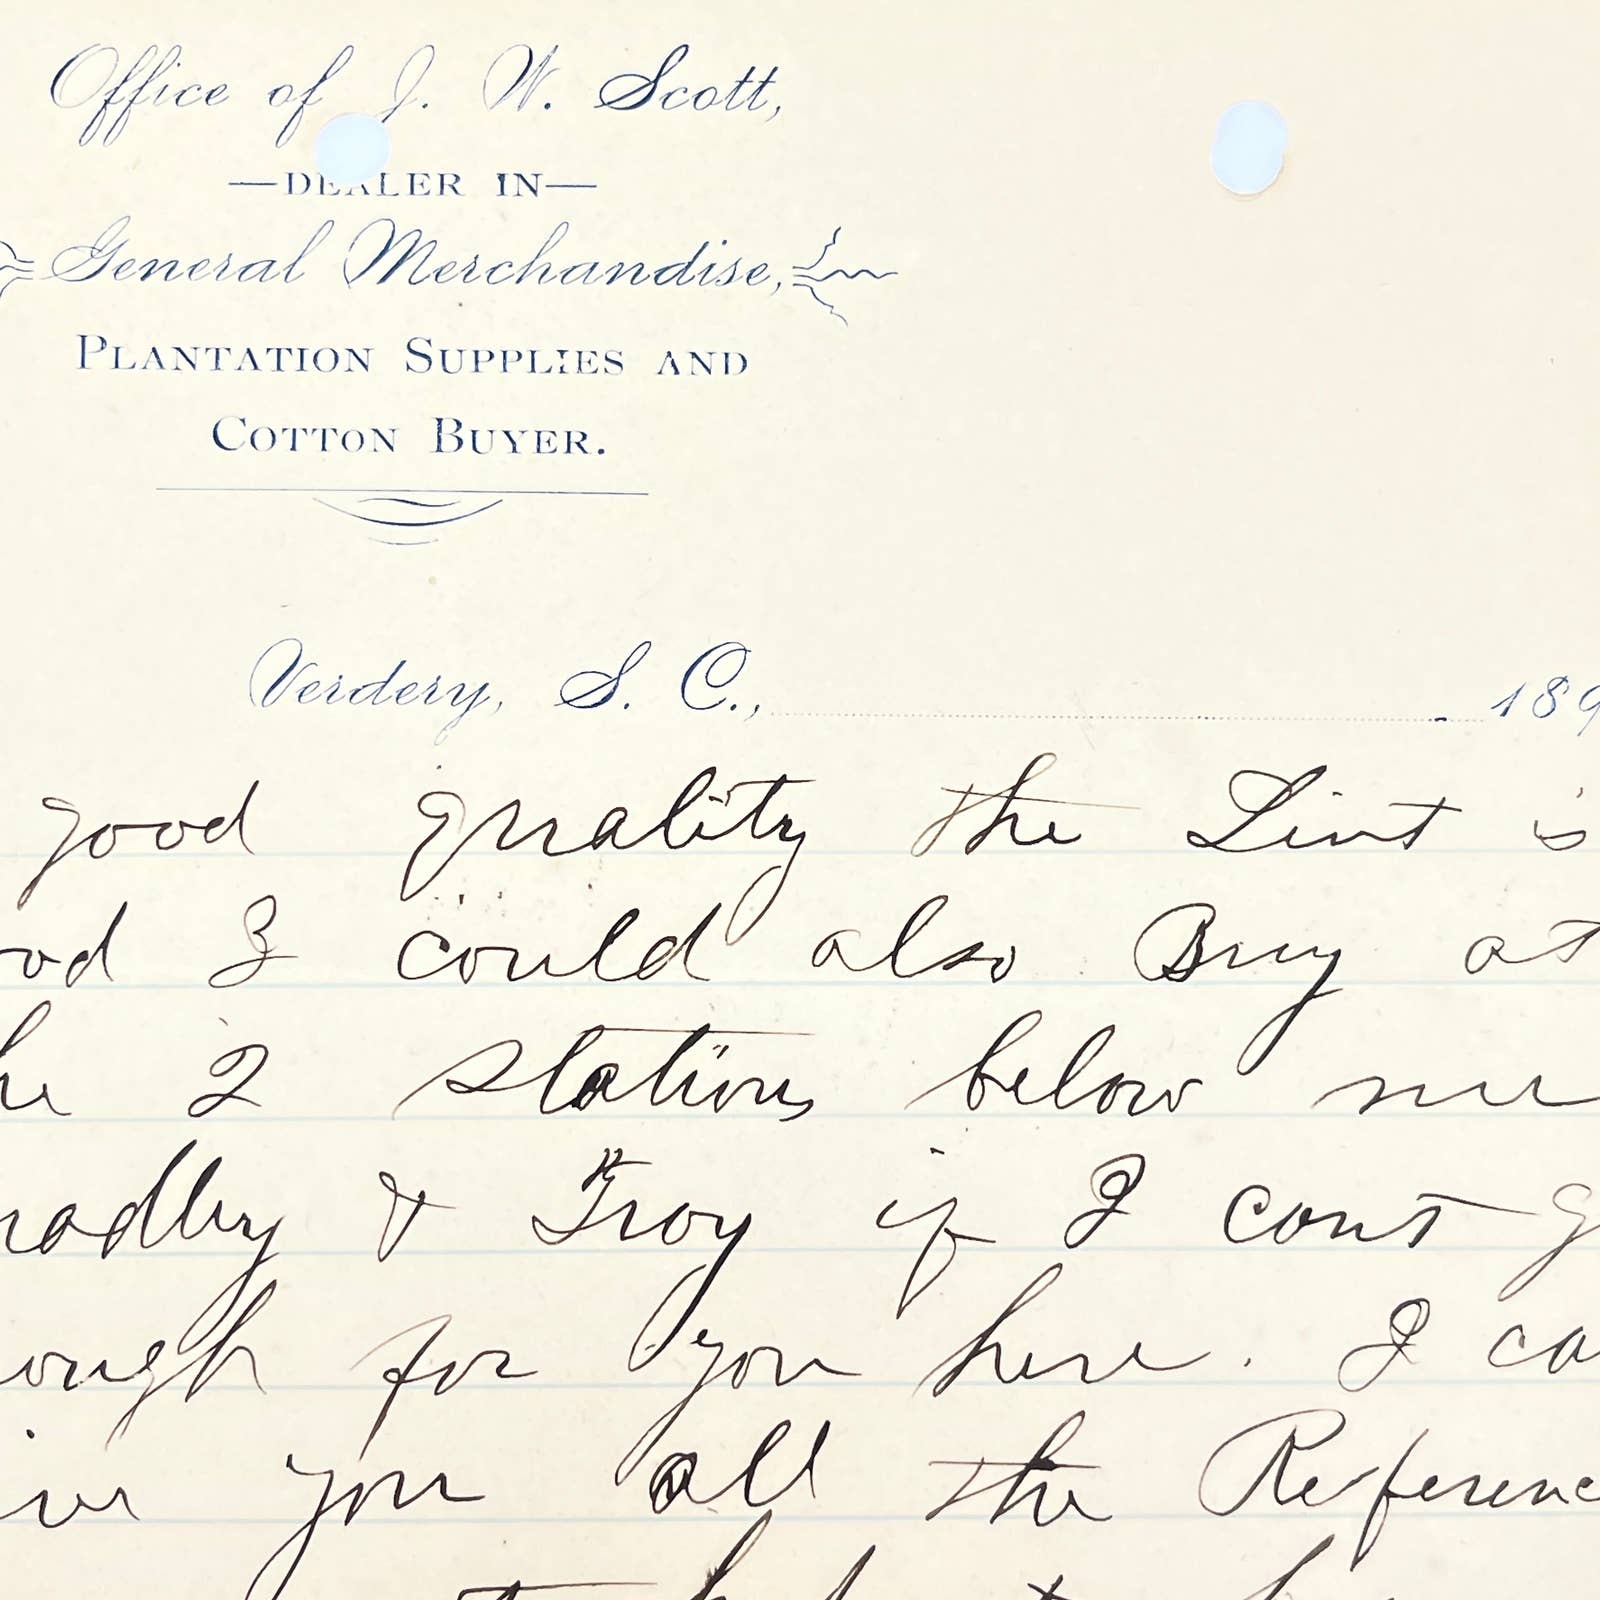 Office of J. W. Scott,
—DEALER IN—
General Merchandise,
PLANTATION SUPPLIES AND
COTTON BUYER.
Verdery, S. C., 189
good quality the Lint is
od I could also Buy at
he 2 stations below me
radley & Troy if I cant g
ough for you here. I ca
ive you all the Referenc